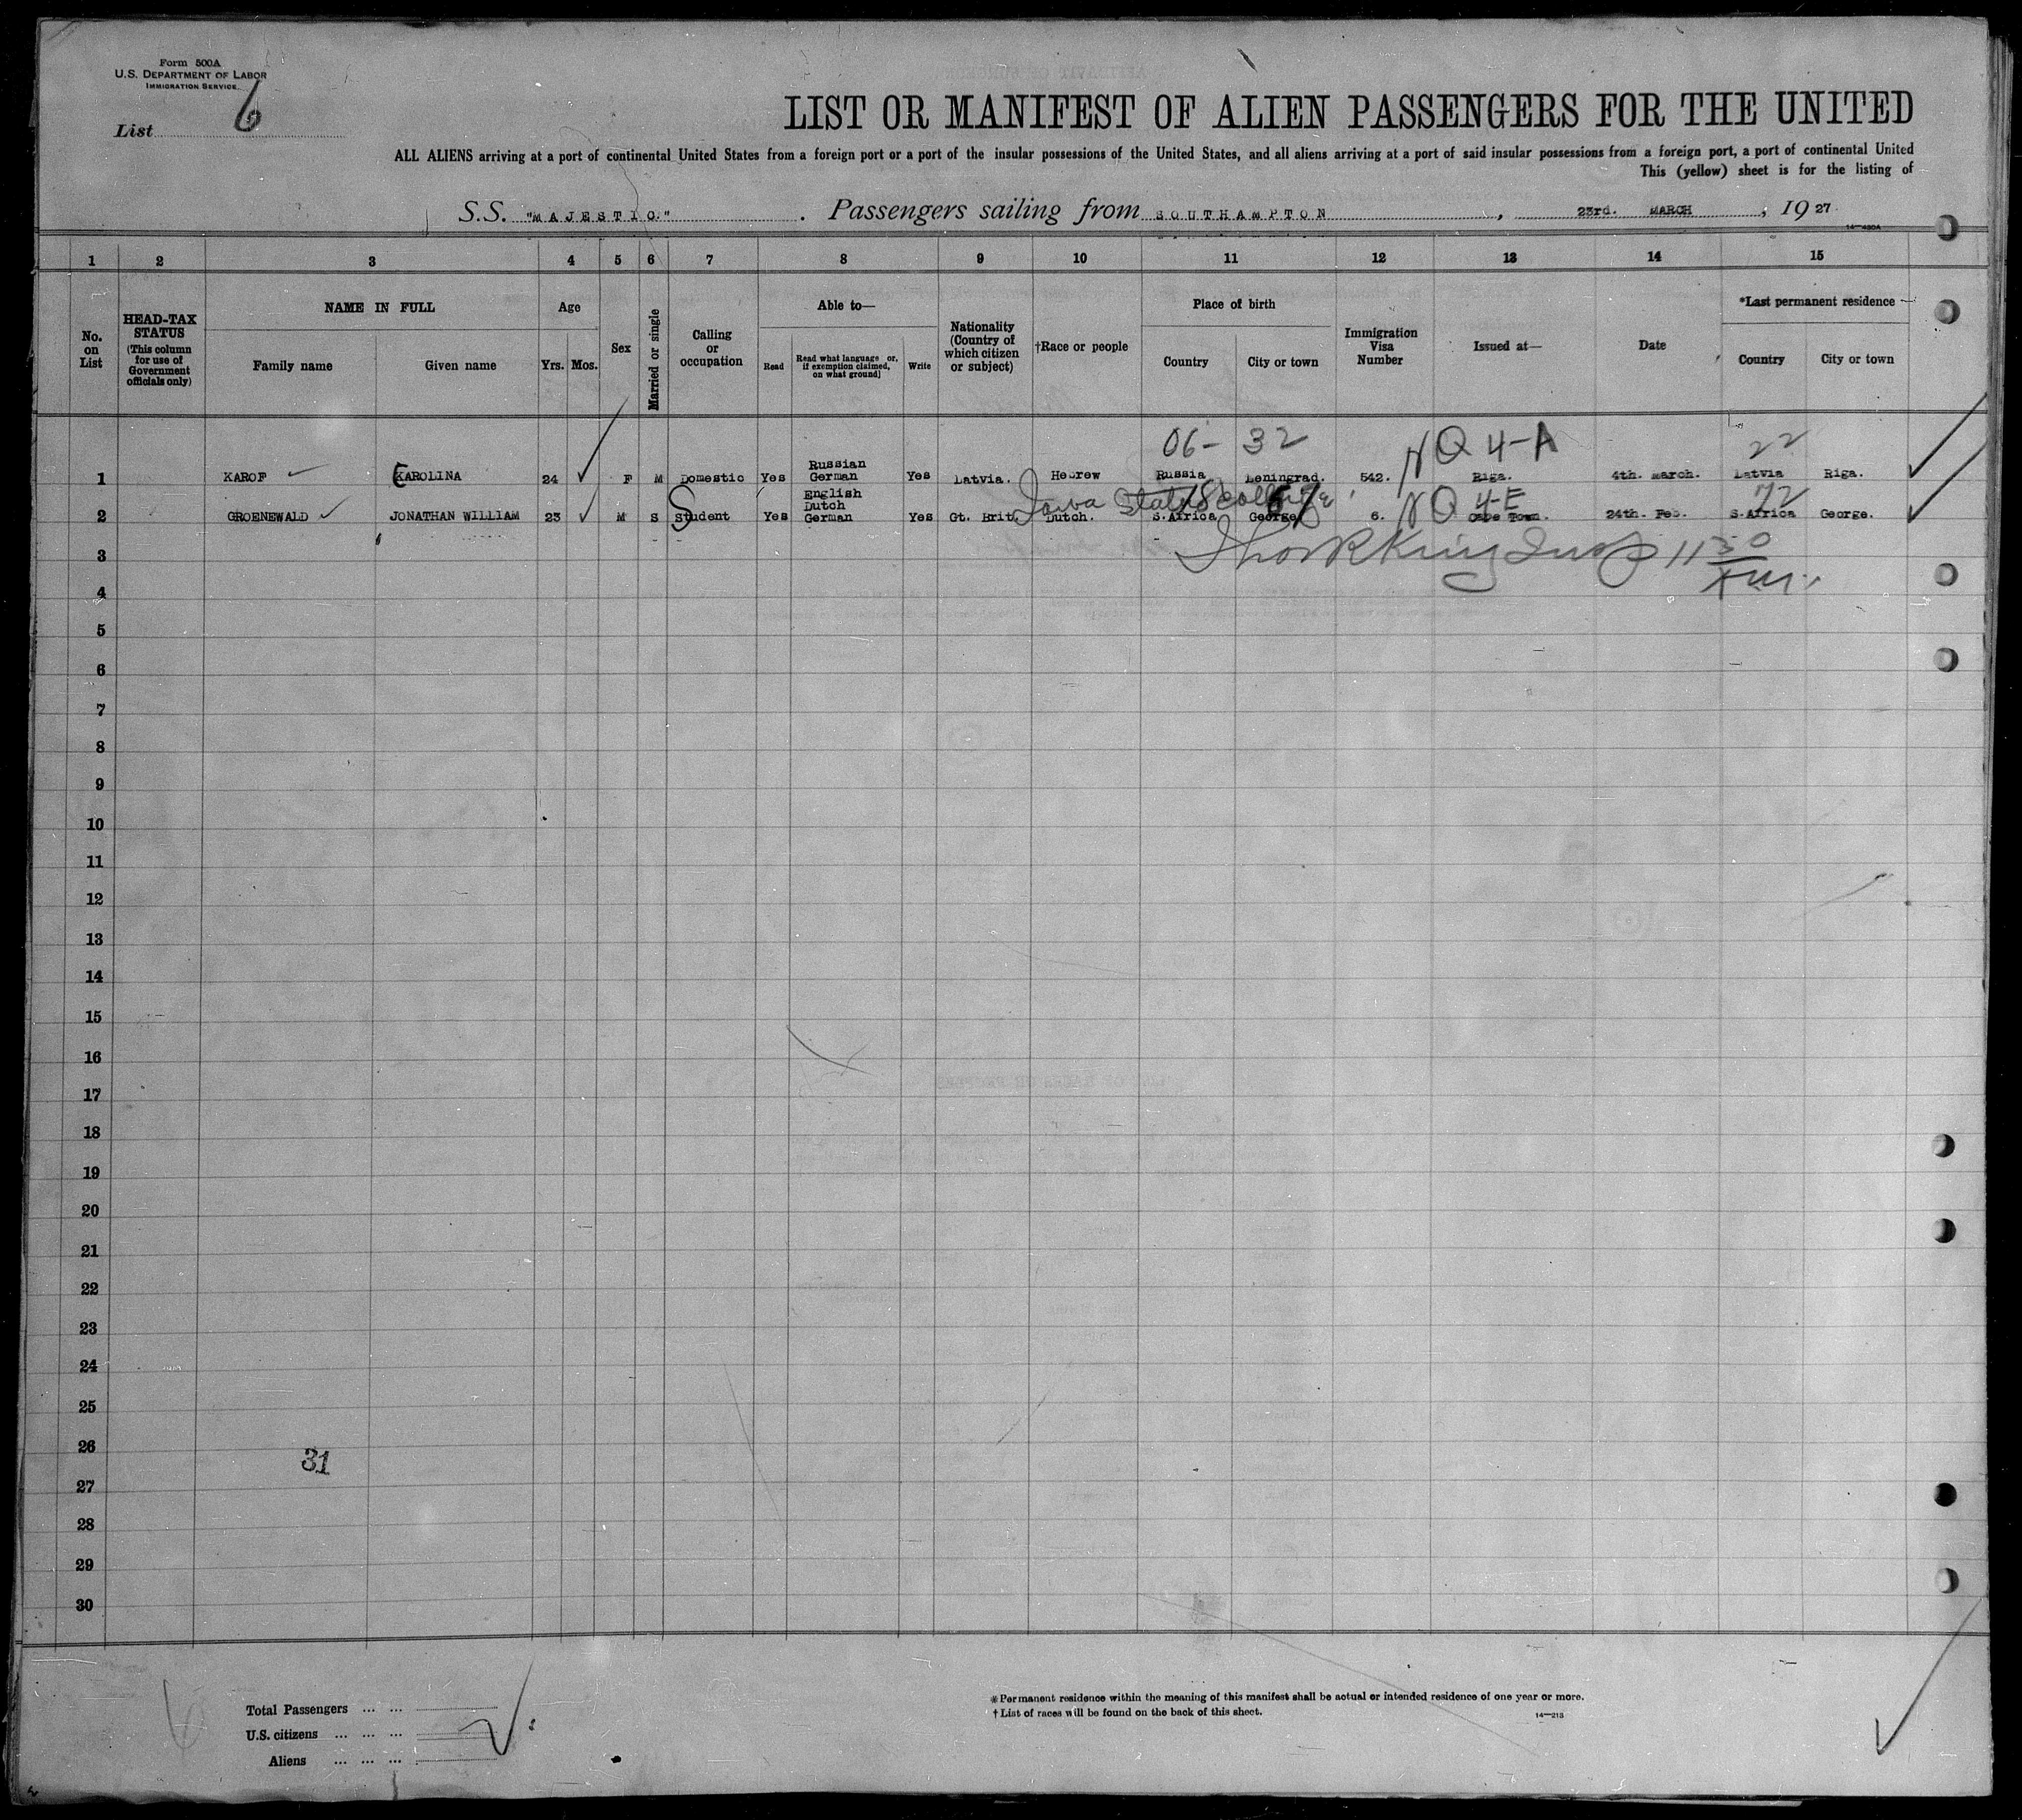 Form 500A
U.S. DEPARTMENT OF LABOR
IMMIGRATION SERVICE.
List 6
LIST OR MANIFEST OF ALIEN PASSENGERS FOR THE UNITED
ALL ALIENS arriving at a port of continental United States from a foreign port or a port of the insular possessions of the United States, and all aliens arriving at a port of said insular possessions from a foreign port, a port of continental United
This (yellow) sheet is for the listing of
S.S. "MAJESTIC." . Passengers sailing from SOUTHAMPTON , 23rd. MARCH , 1927
14-430A
1 2 3 4 5 6 7 8 9 10 11 12 13 14 15
No. on List
HEAD-TAX STATUS
(This column for use of Government officials only)
NAME IN FULL
Family name Given name
Age
Yrs. Mos.
Sex
Married or single
Calling or occupation
Able to—
Read
Read what language or, if exemption claimed, on what ground)
Write
Nationality (Country of which citizen or subject)
†Race or people
Place of birth
Country City or town
Immigration Visa Number
Issued at—
Date
*Last permanent residence
Country City or town
06- 32 NQ 4-A 22
1 KAROF KAROLINA 24 F M Domestic Yes Russian German Yes Latvia. Hebrew Russia Leningrad. 542. Riga. 4th. March. Latvia Riga.
Iowa State College 67 NQ 4-E 72
2 GROENEWALD JONATHAN WILLIAM 23 M S Student Yes English Dutch German Yes Gt. Brit. Dutch. S.Africa George 6. Cape Town. 24th. Feb. S.Africa George.
King Insp 11 30
3
4
5
6
7
8
9
10
11
12
13
14
15
16
17
18
19
20
21
22
23
24
25
26
31
27
28
29
30
Total Passengers ... ...
U.S. citizens ... ... ...
Aliens ... ... ...
*Permanent residence within the meaning of this manifest shall be actual or intended residence of one year or more.
†List of races will be found on the back of this sheet.
14—213